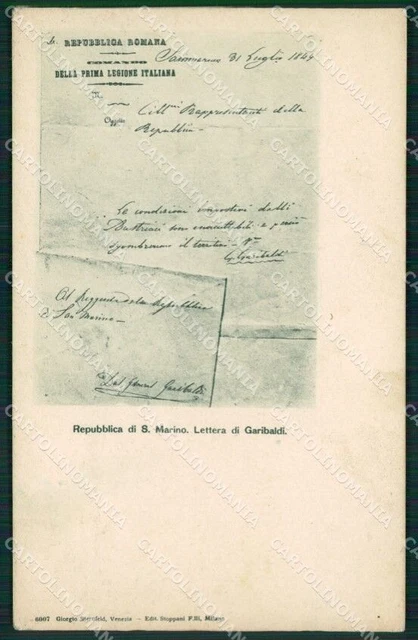 REPUBBLICA ROMANA
Sanmarino 31 Luglio 1849
COMANDO
DELLA PRIMA LEGIONE ITALIANA
Citt.ni Rappresentanti della
Repubblica
Le condizioni
Austriaci sono inaccettabili e perciò
sgombreremo il territorio
G. Garibaldi
Al Reggente della Repubblica
S. San Marino
Dal General Garibaldi
Repubblica di S. Marino. Lettera di Garibaldi.
6007 Giorgio Venezia - Edit. Stoppani F.lli, Milano
CARTOLINOMANIA